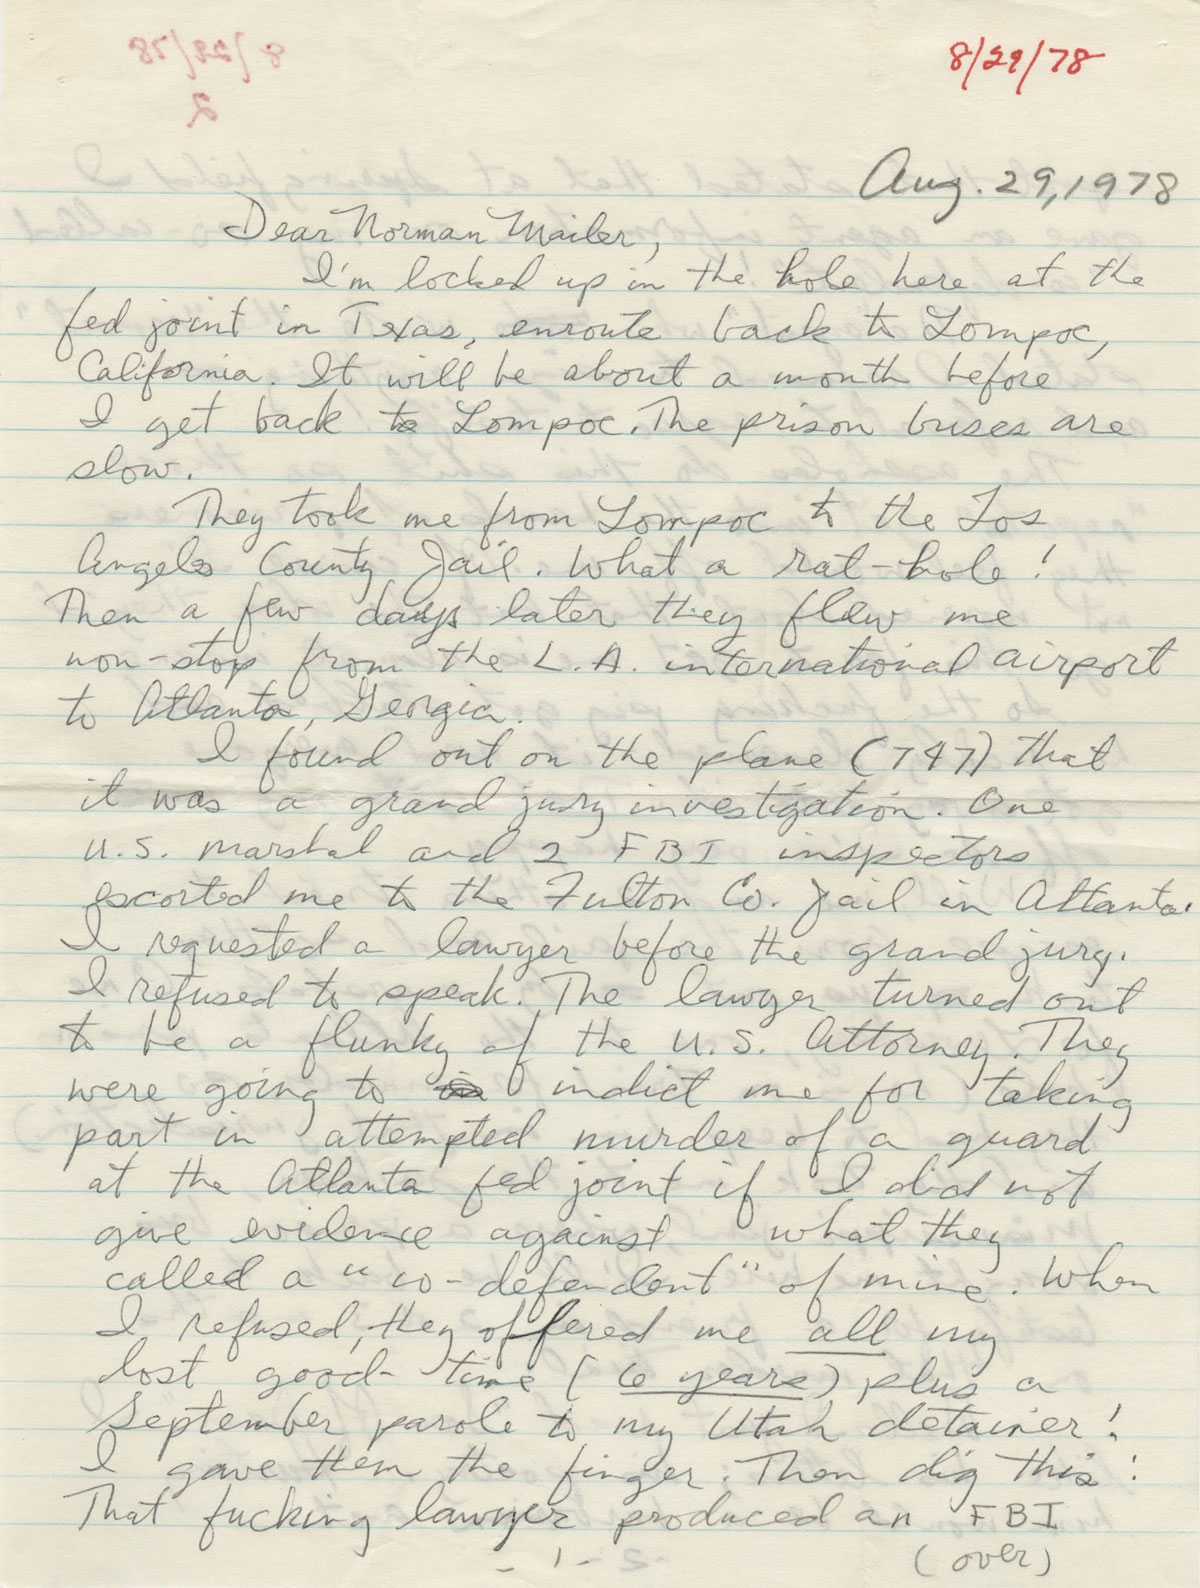 8/29/78
Aug. 29, 1978
Dear Norman Mailer,
I'm locked up in the hole here at the
fed joint in Texas, enroute back to Lompoc,
California. It will be about a month before
I get back to Lompoc. The prison buses are
slow.
They took me from Lompoc to the Los
Angeles County Jail. What a rat-hole!
Then a few days later they flew me
non-stop from the L.A. international airport
to Atlanta, Georgia.
I found out on the plane (747) that
it was a grand jury investigation. One
U.S. marshal and 2 FBI inspectors
escorted me to the Fulton Co. Jail in Atlanta.
I requested a lawyer before the grand jury.
I refused to speak. The lawyer turned out
to be a flunky of the U.S. Attorney. They
were going to indict me for taking
part in attempted murder of a guard
at the Atlanta fed joint if I did not
give evidence against what they
called a "co-defendent" of mine. When
I refused, they offered me all my
lost good-time (6 years) plus a
September parole to my Utah detainer!
I gave them the finger. Then dig this:
That fucking lawyer produced an FBI
-1-
(over)